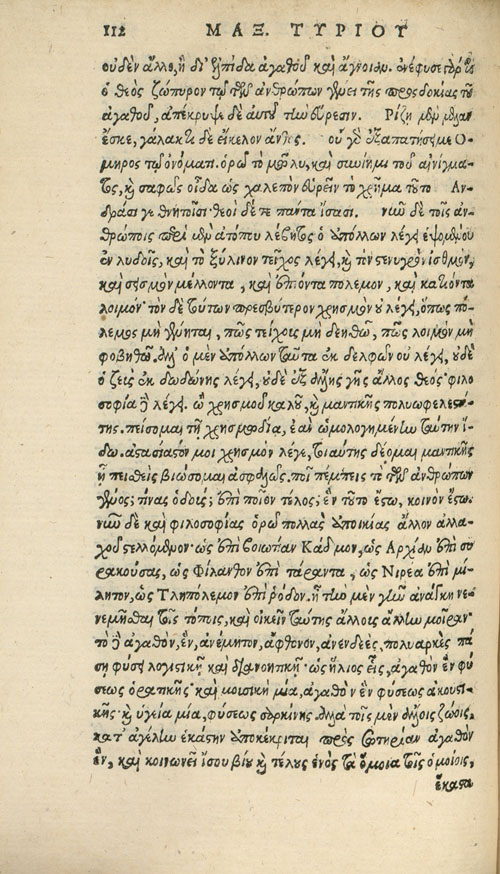 112 ΜΑΞ. ΤΥΡΙΟΥ
οὐδὲν ἄλλο, ἢ δι' ἐλπίδα ἀγαθοῦ καὶ ἄγνοιαν. ἐνέφυσε γὰρ
ὁ θεὸς ζώπυρον τῷ τῶν ἀνθρώπων γένει τῆς προσδοκίας τοῦ
ἀγαθοῦ, ἀπέκρυψε δὲ αὐτοῦ τὴν εὕρεσιν. Ρίζῃ μὲν μέλαν
ἔσκε, γάλακτι δὲ εἴκελον ἄνθος. οὐ γὰρ ἐξαπατήσει με Ο-
μηρος τῷ ὀνόματι. ὁρῶ τὸ μῶλυ, καὶ συνίημι τοῦ αἰνίγμα-
τος, καὶ σαφῶς οἶδα ὡς χαλεπὸν εὑρεῖν τὸ χρῆμα τοῦτο Αν-
δράσι γε θνητοῖσι· θεοὶ δέ τε πάντα ἴσασι. νῦν δὲ τοῖς ἀν-
θρώποις περὶ μὲν ἀτόπου λέβητος ὁ Ἀπόλλων λέγει ἑψομένου
ἐν λυδοῖς, καὶ τὸ ξύλινον τεῖχος λέγει, καὶ τὸν στενυγρὸν ἰσθμὸν,
καὶ σεισμὸν μέλλοντα, καὶ ἐπιόντα πόλεμον, καὶ κατιόντα
λοιμόν· τὸν δὲ τούτων πρεσβύτερον χρησμὸν οὐ λέγει, ὅπως πό-
λεμος μὴ γένηται, πῶς τείχοις μὴ δεηθῶ, πῶς λοιμὸν μὴ
φοβηθῶ. ἀλλ' ὁ μὲν Ἀπόλλων ταῦτα ἐκ δελφῶν οὐ λέγει, οὐδὲ
ὁ ζεὺς ἐκ δωδώνης λέγει, οὐδὲ ἐξ ἄλλης γῆς ἄλλος θεός· φιλο
σοφία δὲ λέγει. ὦ χρησμοῦ καλοῦ, καὶ μαντικῆς πολυωφελεστά-
της. πείσομαι τῇ χρησμῳδίᾳ, ἐὰν ὡμολογημένην ταύτην ἴ-
δω. ἀστασίαστόν μοι χρησμὸν λέγε, τοιαύτης δέομαι μαντικῆς
ᾗ πεισθεὶς βιώσομαι ἀσφαλῶς. ποῖ πέμπεις τὸ τῶν ἀνθρώπων
γένος; τίνας ὁδούς; ἐπὶ ποῖον τέλος; ἓν τοῦτο ἔστω, κοινὸν ἔστω.
νῦν δὲ καὶ φιλοσοφίας ὁρῶ πολλὰς ἀποικίας ἄλλον ἀλλα-
χοῦ στελλόμενον· ὡς ἐπὶ βοιωτίαν Κάδμον, ὡς Ἀρχίαν ἐπὶ συ
ρακούσας, ὡς Φίλανθον ἐπὶ τάραντα, ὡς Νιρέα ἐπὶ μί-
λητον, ὡς Τληπόλεμον ἐπὶ ῥόδον. ἢ τὴν μὲν γῆν ἀνάγκη νε-
νεμῆσθαι τοῖς τόποις, καὶ οἰκεῖν ταύτης ἄλλοις ἄλλην μοῖραν·
τὸ δὲ ἀγαθὸν, ἓν, ἀνέμητον, ἄφθονον, ἀνενδεές, πολυαρκὲς πά
σῃ φύσει λογιστικῇ καὶ διανοητικῇ· ὡς ἥλιος εἷς, ἀγαθὸν ἓν φύ
σεως ὁρατικῆς· καὶ μουσικὴ μία, ἀγαθὸν ἓν φύσεως ἀκουστι-
κῆς· καὶ ὑγεία μία, φύσεως σαρκίνης. ἀλλὰ τοῖς μὲν ἄλλοις ζώοις,
κατ' ἀγέλην ἑκάστην ἀποκέκριται πρὸς σωτηρίαν ἀγαθὸν
ἓν, καὶ κοινωνεῖ ἴσου βίου καὶ τέλους ἑνὸς τὰ ὅμοια τοῖς ὁμοίοις,
ἕκαστα